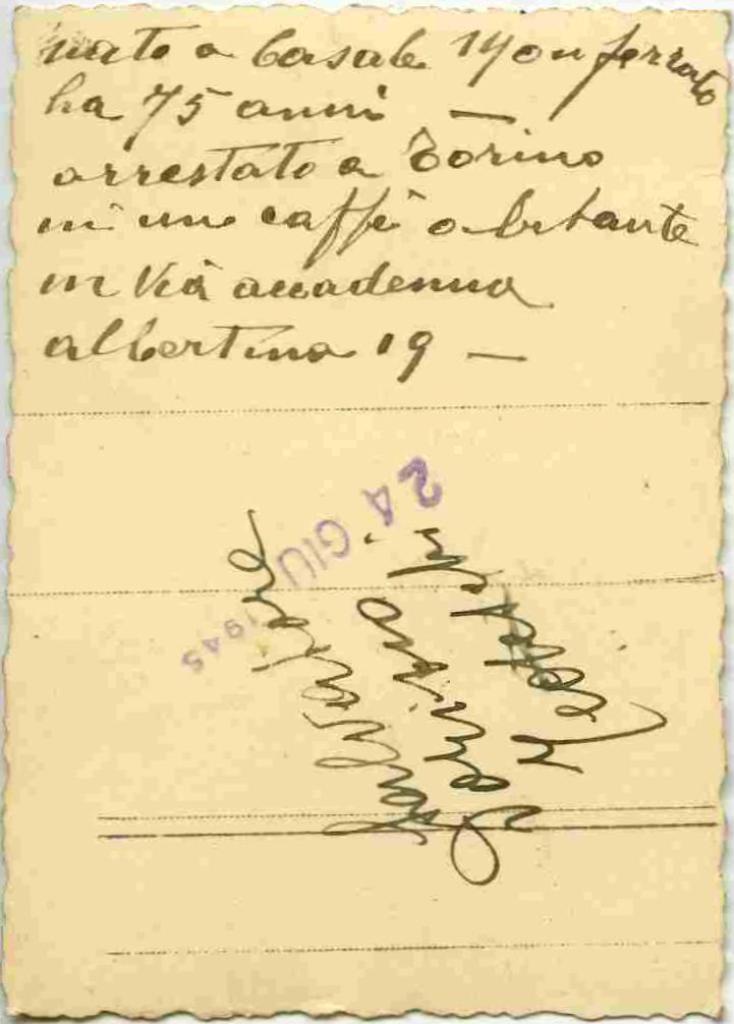 nato a Casale Monferrato
ha 75 anni —
arrestato a Torino
in un caffè abitante
in Via accademia
albertina 19 —
24 GIU 1945
Salvatore
Segre